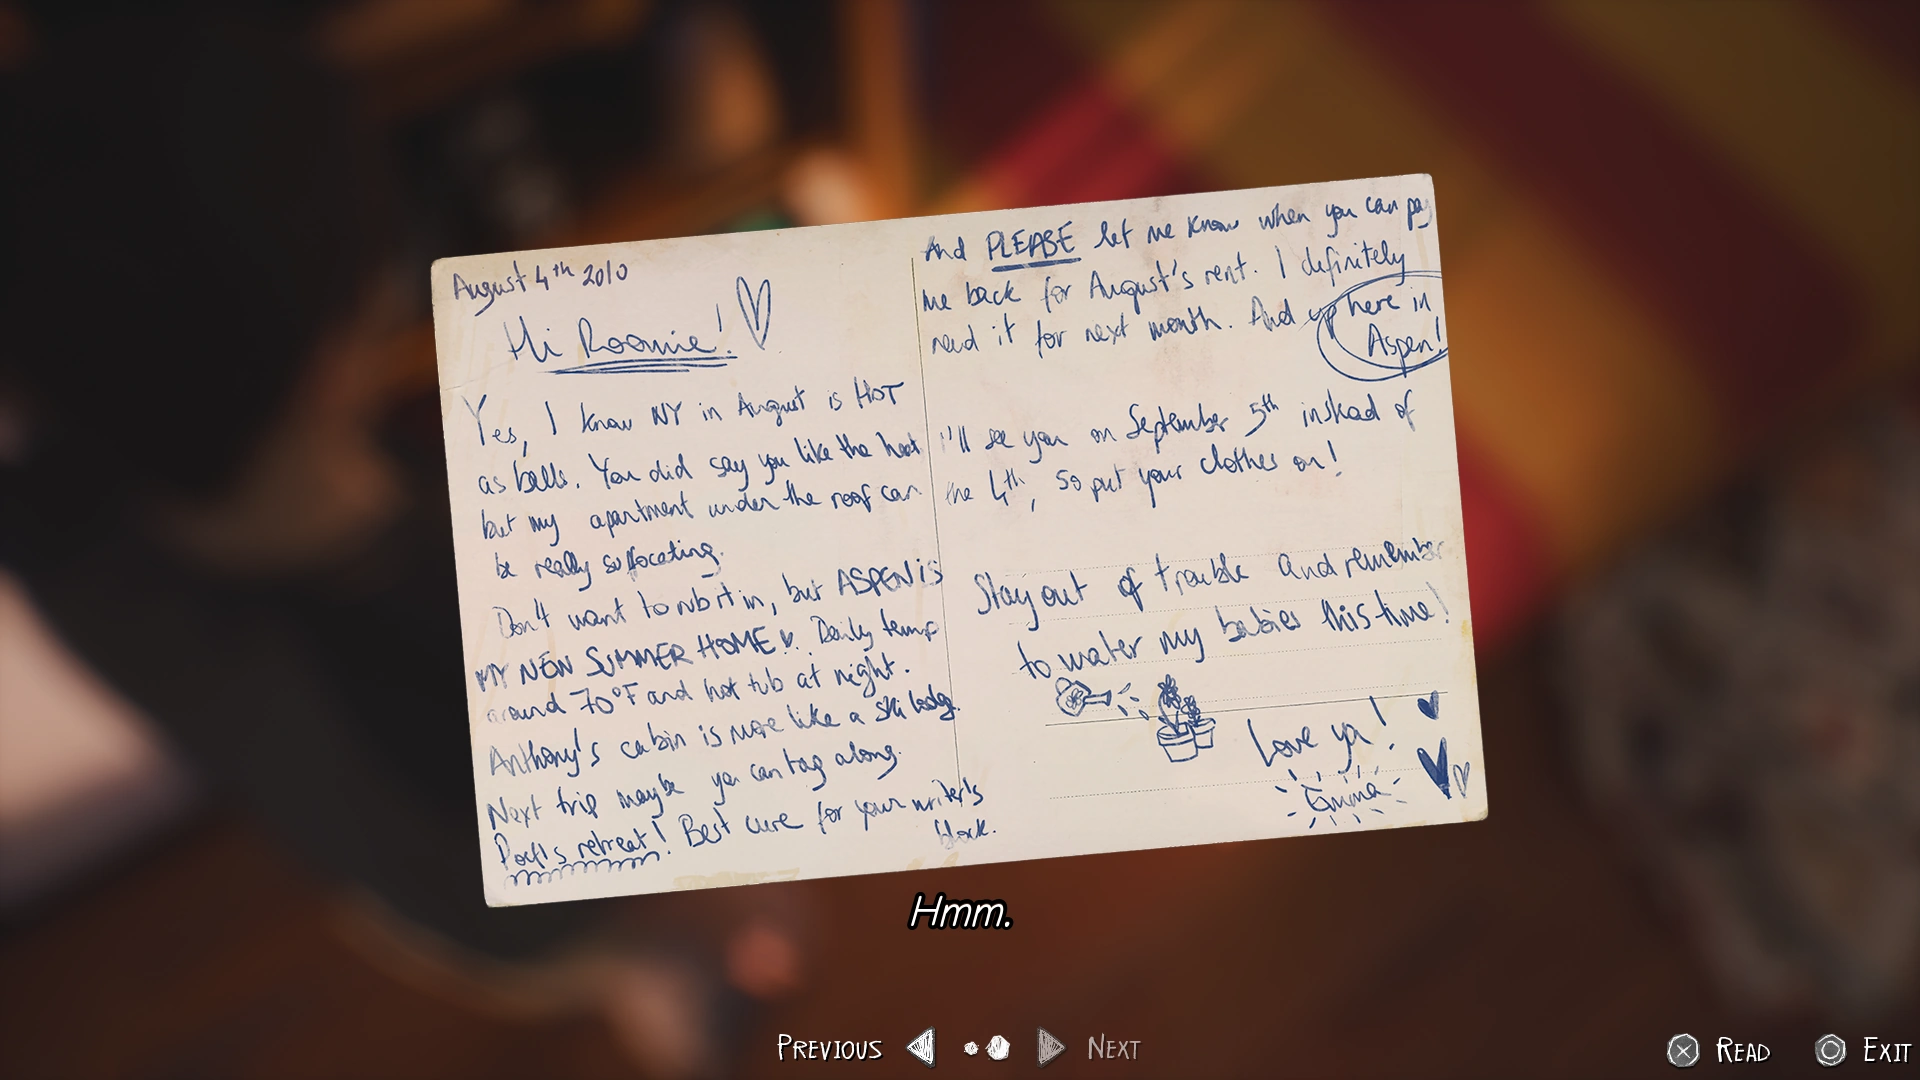 August 4th 2010
Hi Roomie!
Yes, I know NY in August is HOT
as balls. You did say you like the heat
but my apartment under the roof can
be really suffocating.
Don't want to rub it in, but ASPEN is
MY NEW SUMMER HOME. Daily temp
around 70°F and hot tub at night.
Anthony's cabin is more like a ski lodge.
Next trip maybe you can tag along.
Poet's retreat! Best cure for your writer's
block.
And PLEASE let me know when you can pay
me back for August's rent. I definitely
need it for next month. And up here in
Aspen!
I'll see you on September 5th instead of
the 4th, so put your clothes on!
Stay out of trouble and remember
to water my babies this time!
Love ya!
Emma
Hmm.
PREVIOUS NEXT
READ EXIT